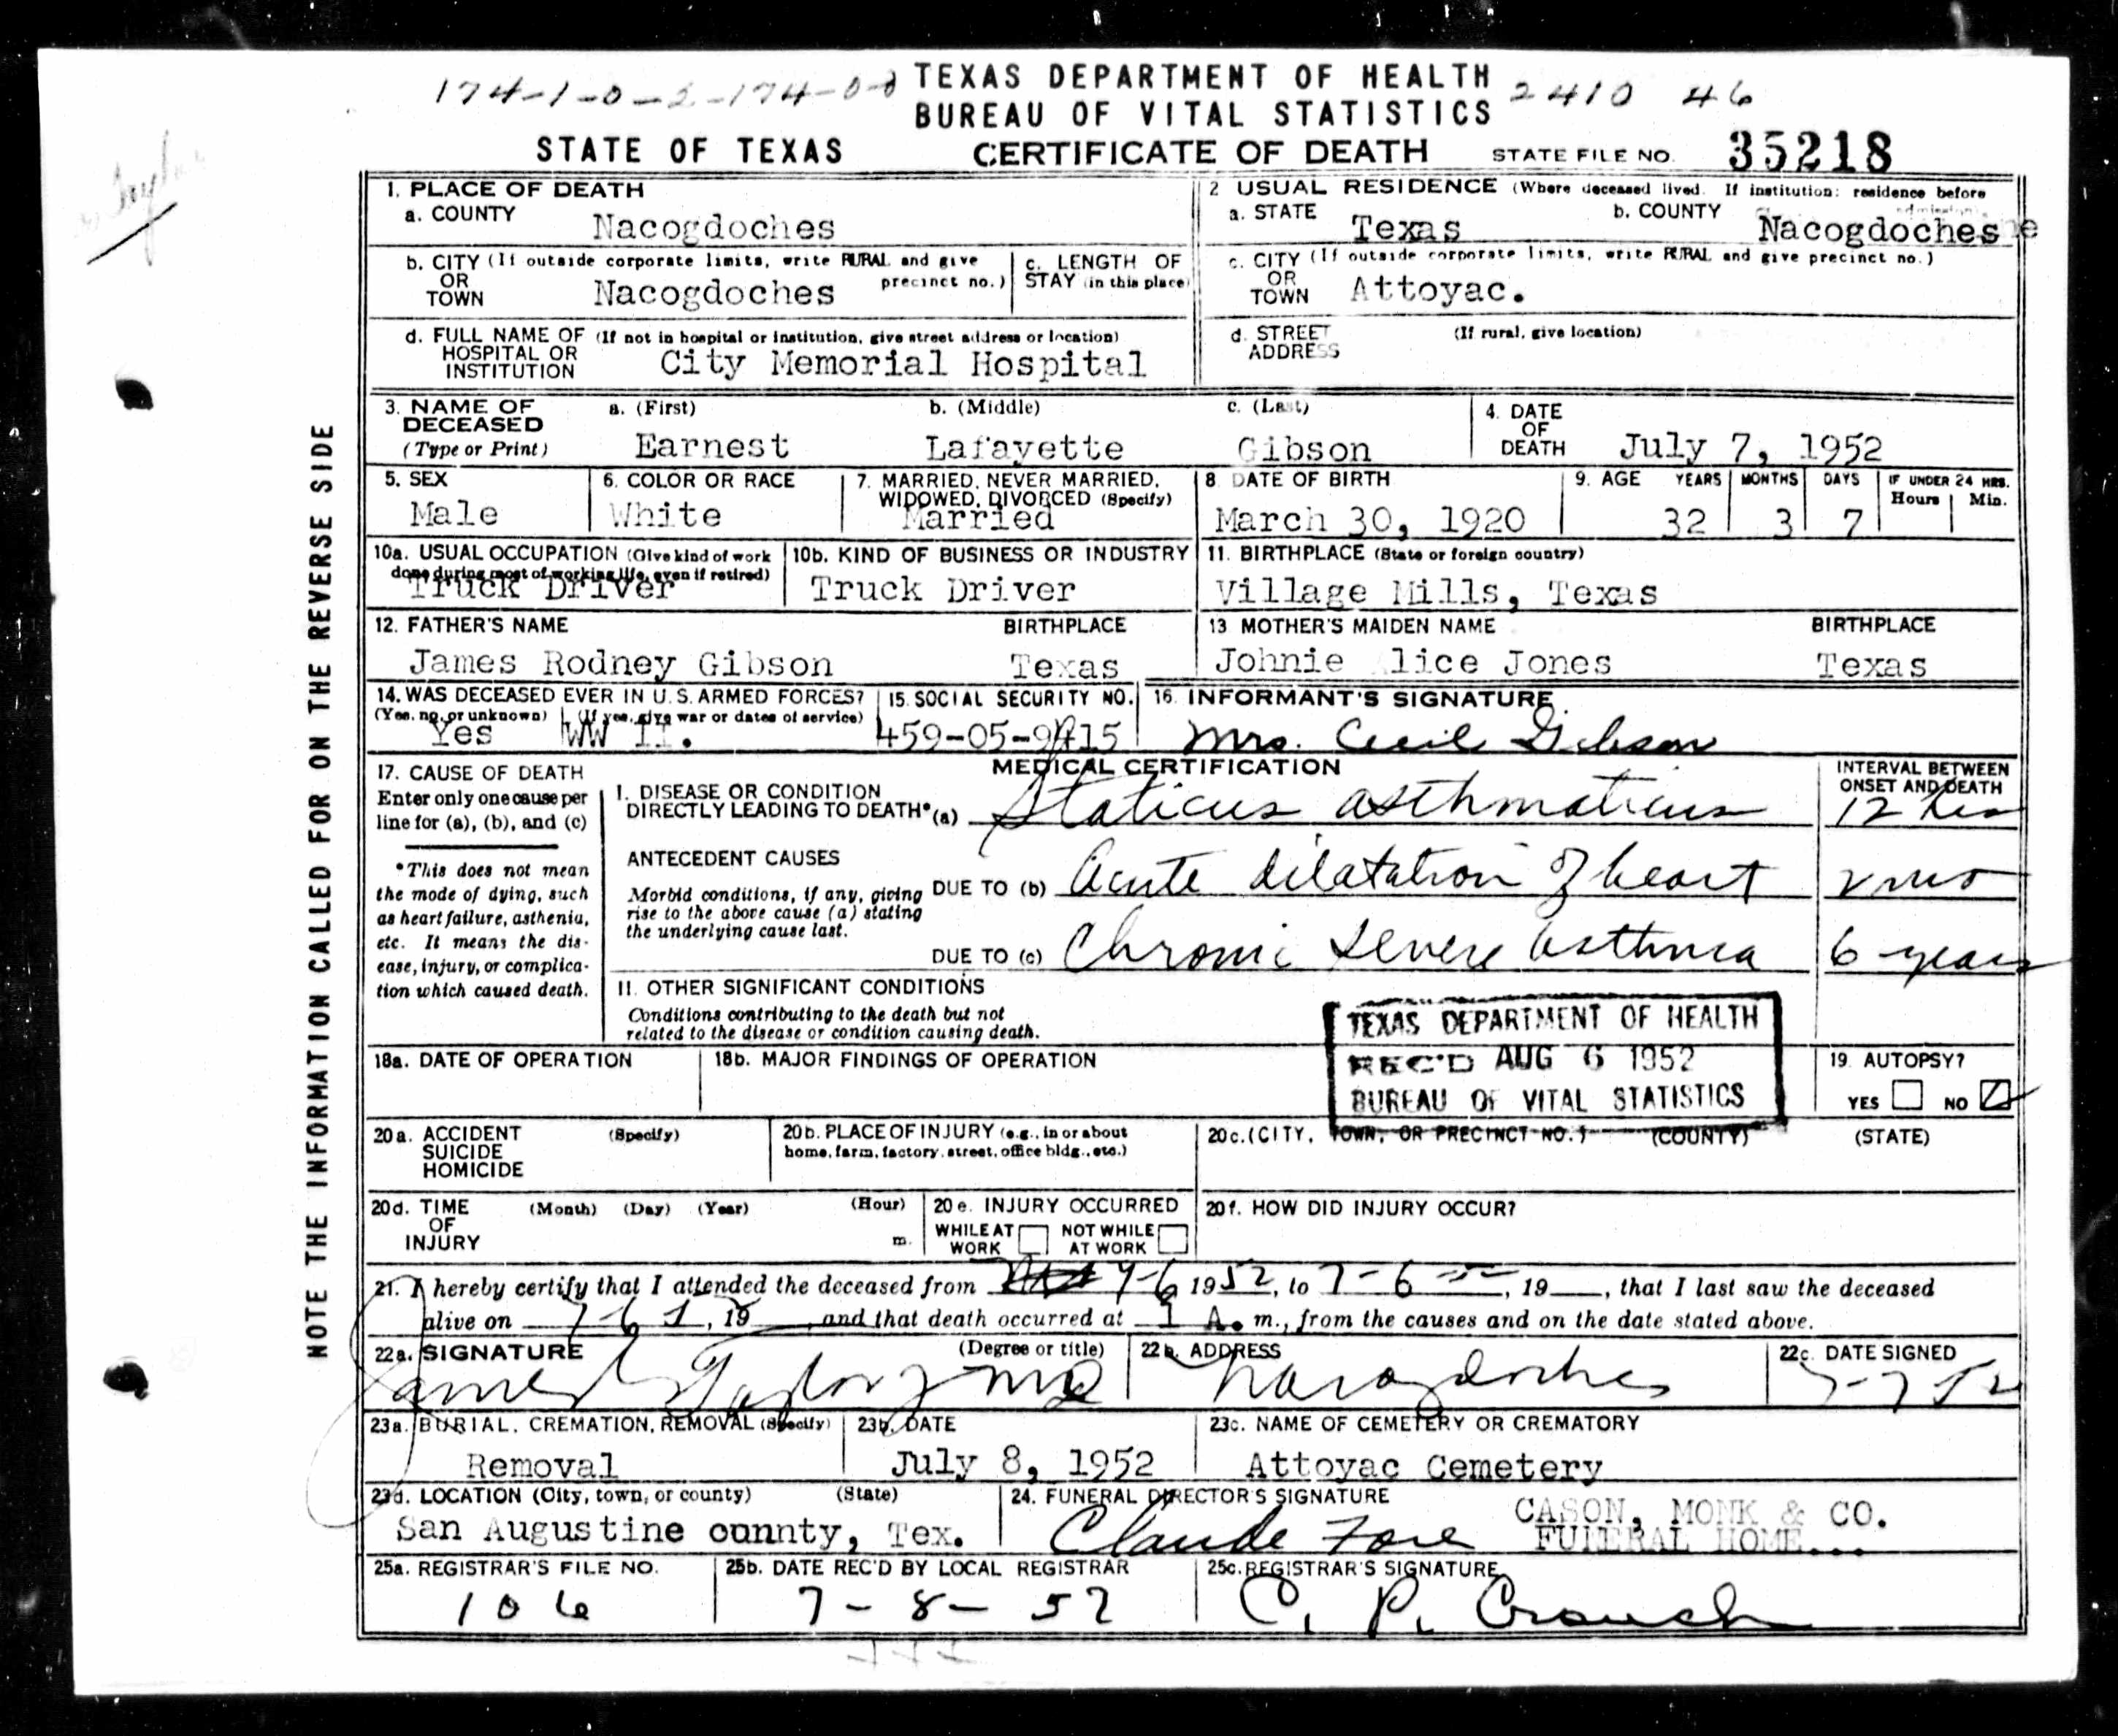 174-1-0-2-174-0-0 TEXAS DEPARTMENT OF HEALTH 2410 46
BUREAU OF VITAL STATISTICS
STATE OF TEXAS CERTIFICATE OF DEATH STATE FILE NO. 35218
NOTE THE INFORMATION CALLED FOR ON THE REVERSE SIDE
1. PLACE OF DEATH
a. COUNTY Nacogdoches
2 USUAL RESIDENCE (Where deceased lived. If institution: residence before admission).
a. STATE Texas b. COUNTY Nacogdoches
b. CITY (If outside corporate limits, write RURAL and give precinct no.)
OR
TOWN Nacogdoches
c. LENGTH OF
STAY (in this place)
c. CITY (If outside corporate limits, write RURAL and give precinct no.)
OR
TOWN Attoyac.
d. FULL NAME OF (If not in hospital or institution, give street address or location)
HOSPITAL OR
INSTITUTION City Memorial Hospital
d. STREET (If rural, give location)
ADDRESS
3. NAME OF DECEASED (Type or Print)
a. (First) b. (Middle) c. (Last)
Earnest Lafayette Gibson
4. DATE OF DEATH July 7, 1952
5. SEX
Male
6. COLOR OR RACE
White
7. MARRIED, NEVER MARRIED, WIDOWED, DIVORCED (Specify)
Married
8 DATE OF BIRTH
March 30, 1920
9. AGE YEARS MONTHS DAYS IF UNDER 24 HRS. Hours Min.
32 3 7
10a. USUAL OCCUPATION (Give kind of work
done during most of working life, even if retired)
Truck Driver
10b. KIND OF BUSINESS OR INDUSTRY
Truck Driver
11. BIRTHPLACE (State or foreign country)
Village Mills, Texas
12. FATHER'S NAME BIRTHPLACE
James Rodney Gibson Texas
13 MOTHER'S MAIDEN NAME BIRTHPLACE
Johnie lice Jones Texas
14. WAS DECEASED EVER IN U.S. ARMED FORCES?
(Yes, no, or unknown) (If yes, give war or dates of service)
Yes WW II.
15. SOCIAL SECURITY NO.
459-05-9415
16. INFORMANT'S SIGNATURE
Mrs. Cecil Gibson
17. CAUSE OF DEATH
Enter only one cause per
line for (a), (b), and (c)
*This does not mean
the mode of dying, such
as heart failure, asthenia,
etc. It means the dis-
ease, injury, or complica-
tion which caused death.
MEDICAL CERTIFICATION
INTERVAL BETWEEN
ONSET AND DEATH
I. DISEASE OR CONDITION
DIRECTLY LEADING TO DEATH* (a) Staticus asthmaticus 12 hrs
ANTECEDENT CAUSES
Morbid conditions, if any, giving
rise to the above cause (a) stating
the underlying cause last.
DUE TO (b) Acute dilatation of heart 2 mos
DUE TO (c) Chronic severe asthma 6 years
II. OTHER SIGNIFICANT CONDITIONS
Conditions contributing to the death but not
related to the disease or condition causing death.
TEXAS DEPARTMENT OF HEALTH
REC'D AUG 6 1952
BUREAU OF VITAL STATISTICS
18a. DATE OF OPERATION
18b. MAJOR FINDINGS OF OPERATION
19. AUTOPSY?
YES NO
20a. ACCIDENT (Specify)
SUICIDE
HOMICIDE
20b. PLACE OF INJURY (e.g., in or about
home, farm, factory, street, office bldg., etc.)
20c. (CITY, TOWN, OR PRECINCT NO.) (COUNTY) (STATE)
20d. TIME (Month) (Day) (Year) (Hour)
OF
INJURY m.
20e. INJURY OCCURRED
WHILE AT WORK NOT WHILE AT WORK
20f. HOW DID INJURY OCCUR?
21. I hereby certify that I attended the deceased from 7-6 1952, to 7-6-52, 19__, that I last saw the deceased
alive on 7-6 , 19__ and that death occurred at 1 A. m., from the causes and on the date stated above.
22a. SIGNATURE (Degree or title)
James Taylor MD
22b. ADDRESS
Nacogdoches
22c. DATE SIGNED
7-7-52
23a. BURIAL, CREMATION, REMOVAL (Specify)
Removal
23b. DATE
July 8, 1952
23c. NAME OF CEMETERY OR CREMATORY
Attoyac Cemetery
23d. LOCATION (City, town, or county) (State)
San Augustine ounnty, Tex.
24. FUNERAL DIRECTOR'S SIGNATURE
Claude Fore
CASON, MONK & CO.
FUNERAL HOME...
25a. REGISTRAR'S FILE NO.
106
25b. DATE REC'D BY LOCAL REGISTRAR
7-8-52
25c. REGISTRAR'S SIGNATURE
C. P. Crouch